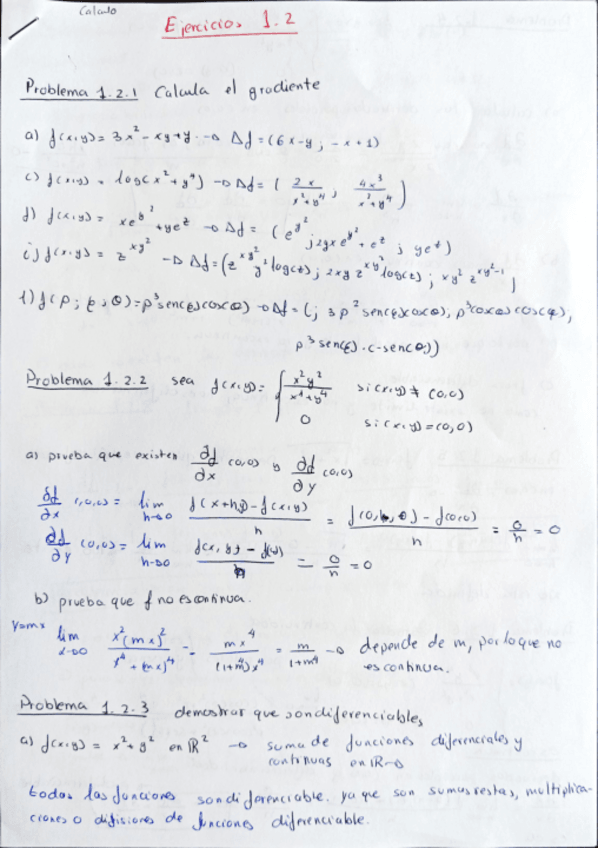 Calculo
Ejercicios 1.2
Problema 1.2.1 Calcula el gradiente
a) f(x,y)= 3x² - xy + y → Δf = (6x-y ; -x+1)
c) f(x,y) = log(x²+y⁴) → Δf = ( 2x/(x²+y⁴) ; 4x³/(x²+y⁴) )
f) f(x,y) = xe^y² + ye^z → Δf = (e^y² ; 2yxe^y² + e^z ; ye^z)
i) f(x,y) = z^xy² → Δf = (z^xy² y² log(z) ; 2xy z^xy² log(z) ; xy² z^xy²-1)
= ( ; 3ρ²
ρ³
Problema 1.2.2 sea f(x,y) = { x²y²/(x⁴+y⁴) si (x,y) ≠ (0,0)
0 si (x,y) = (0,0)
a) prueba que existen ∂f/∂x (0,0) y ∂f/∂y (0,0)
∂f/∂x (0,0) = lim h→0 = 0/h = 0
∂f/∂y (0,0) = lim h→0 = 0/h = 0
b) prueba que f no es continua.
y=mx lim x→0 x²(mx)²/(x⁴+(mx)⁴) = mx⁴/((1+m⁴)x⁴) = m/(1+m⁴) → depende de m, por lo que no
es continua.
Problema 1.2.3 demostrar que son diferenciables
a) f(x,y) = x²+y² en ℝ² → suma de funciones diferenciales y
continuas en ℝ→
todas las funciones son diferenciable. ya que son sumas restas, multiplica-
ciones o difisiones de funciones diferenciable.